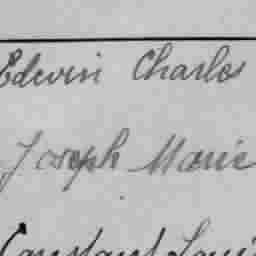 Edwin Charles
Joseph Marie
Constant Louis